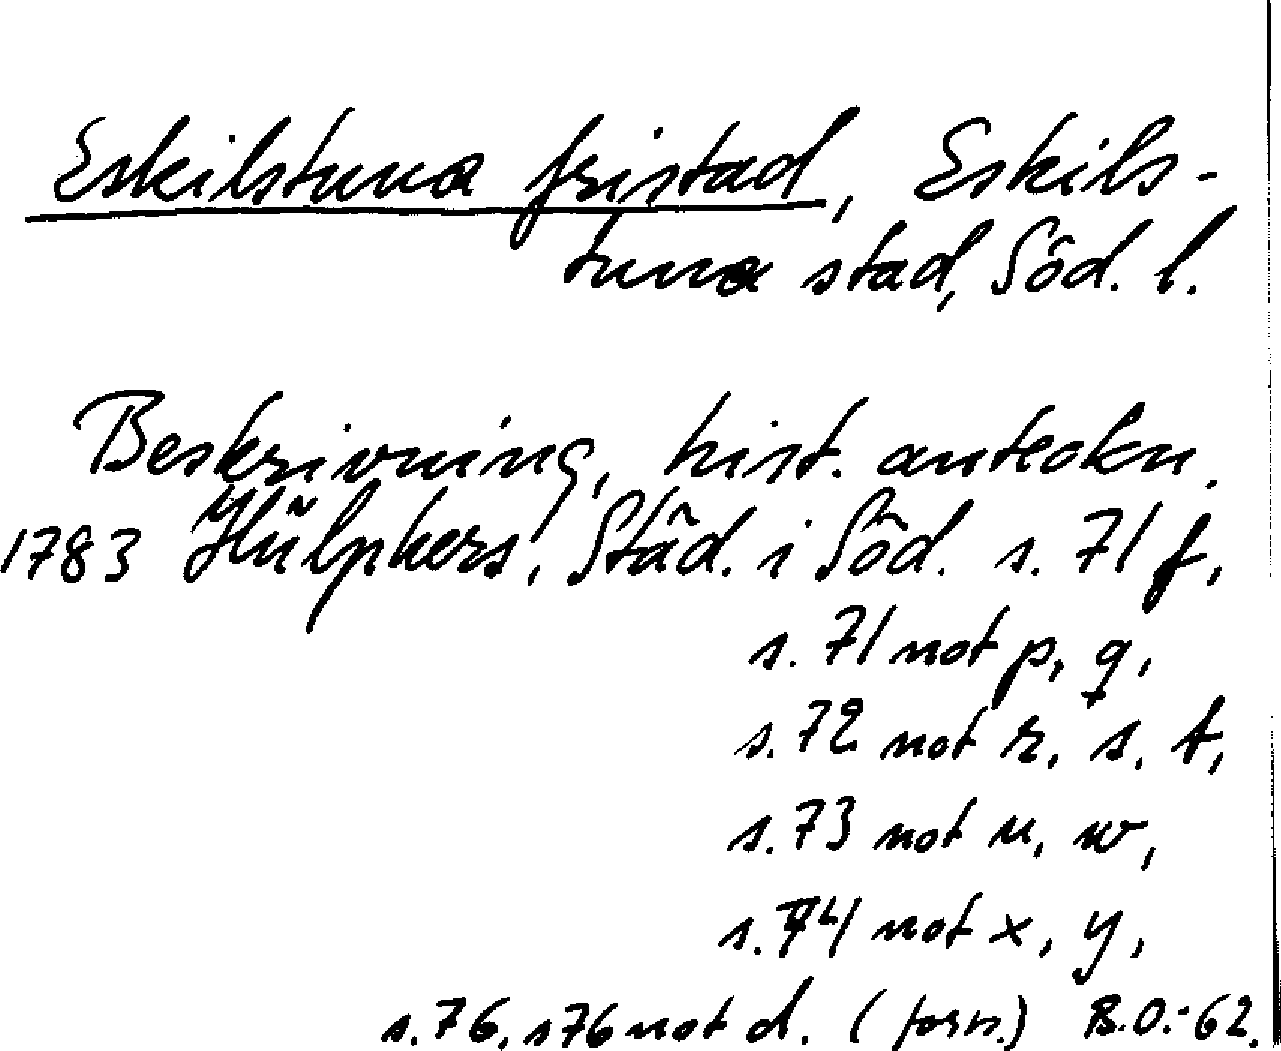 Eskilstuna fristad, Eskils-
tuna stad, Söd. l.
Beskrivning, hist. anteckn.
1783 Hülphers, Städ. i Söd. s. 71 f,
s. 71 not p, q,
s. 72 not r, s, t,
s. 73 not u, w,
s. 74 not x, y,
s. 76, s 76 not d. (forn.) B.O.-62.